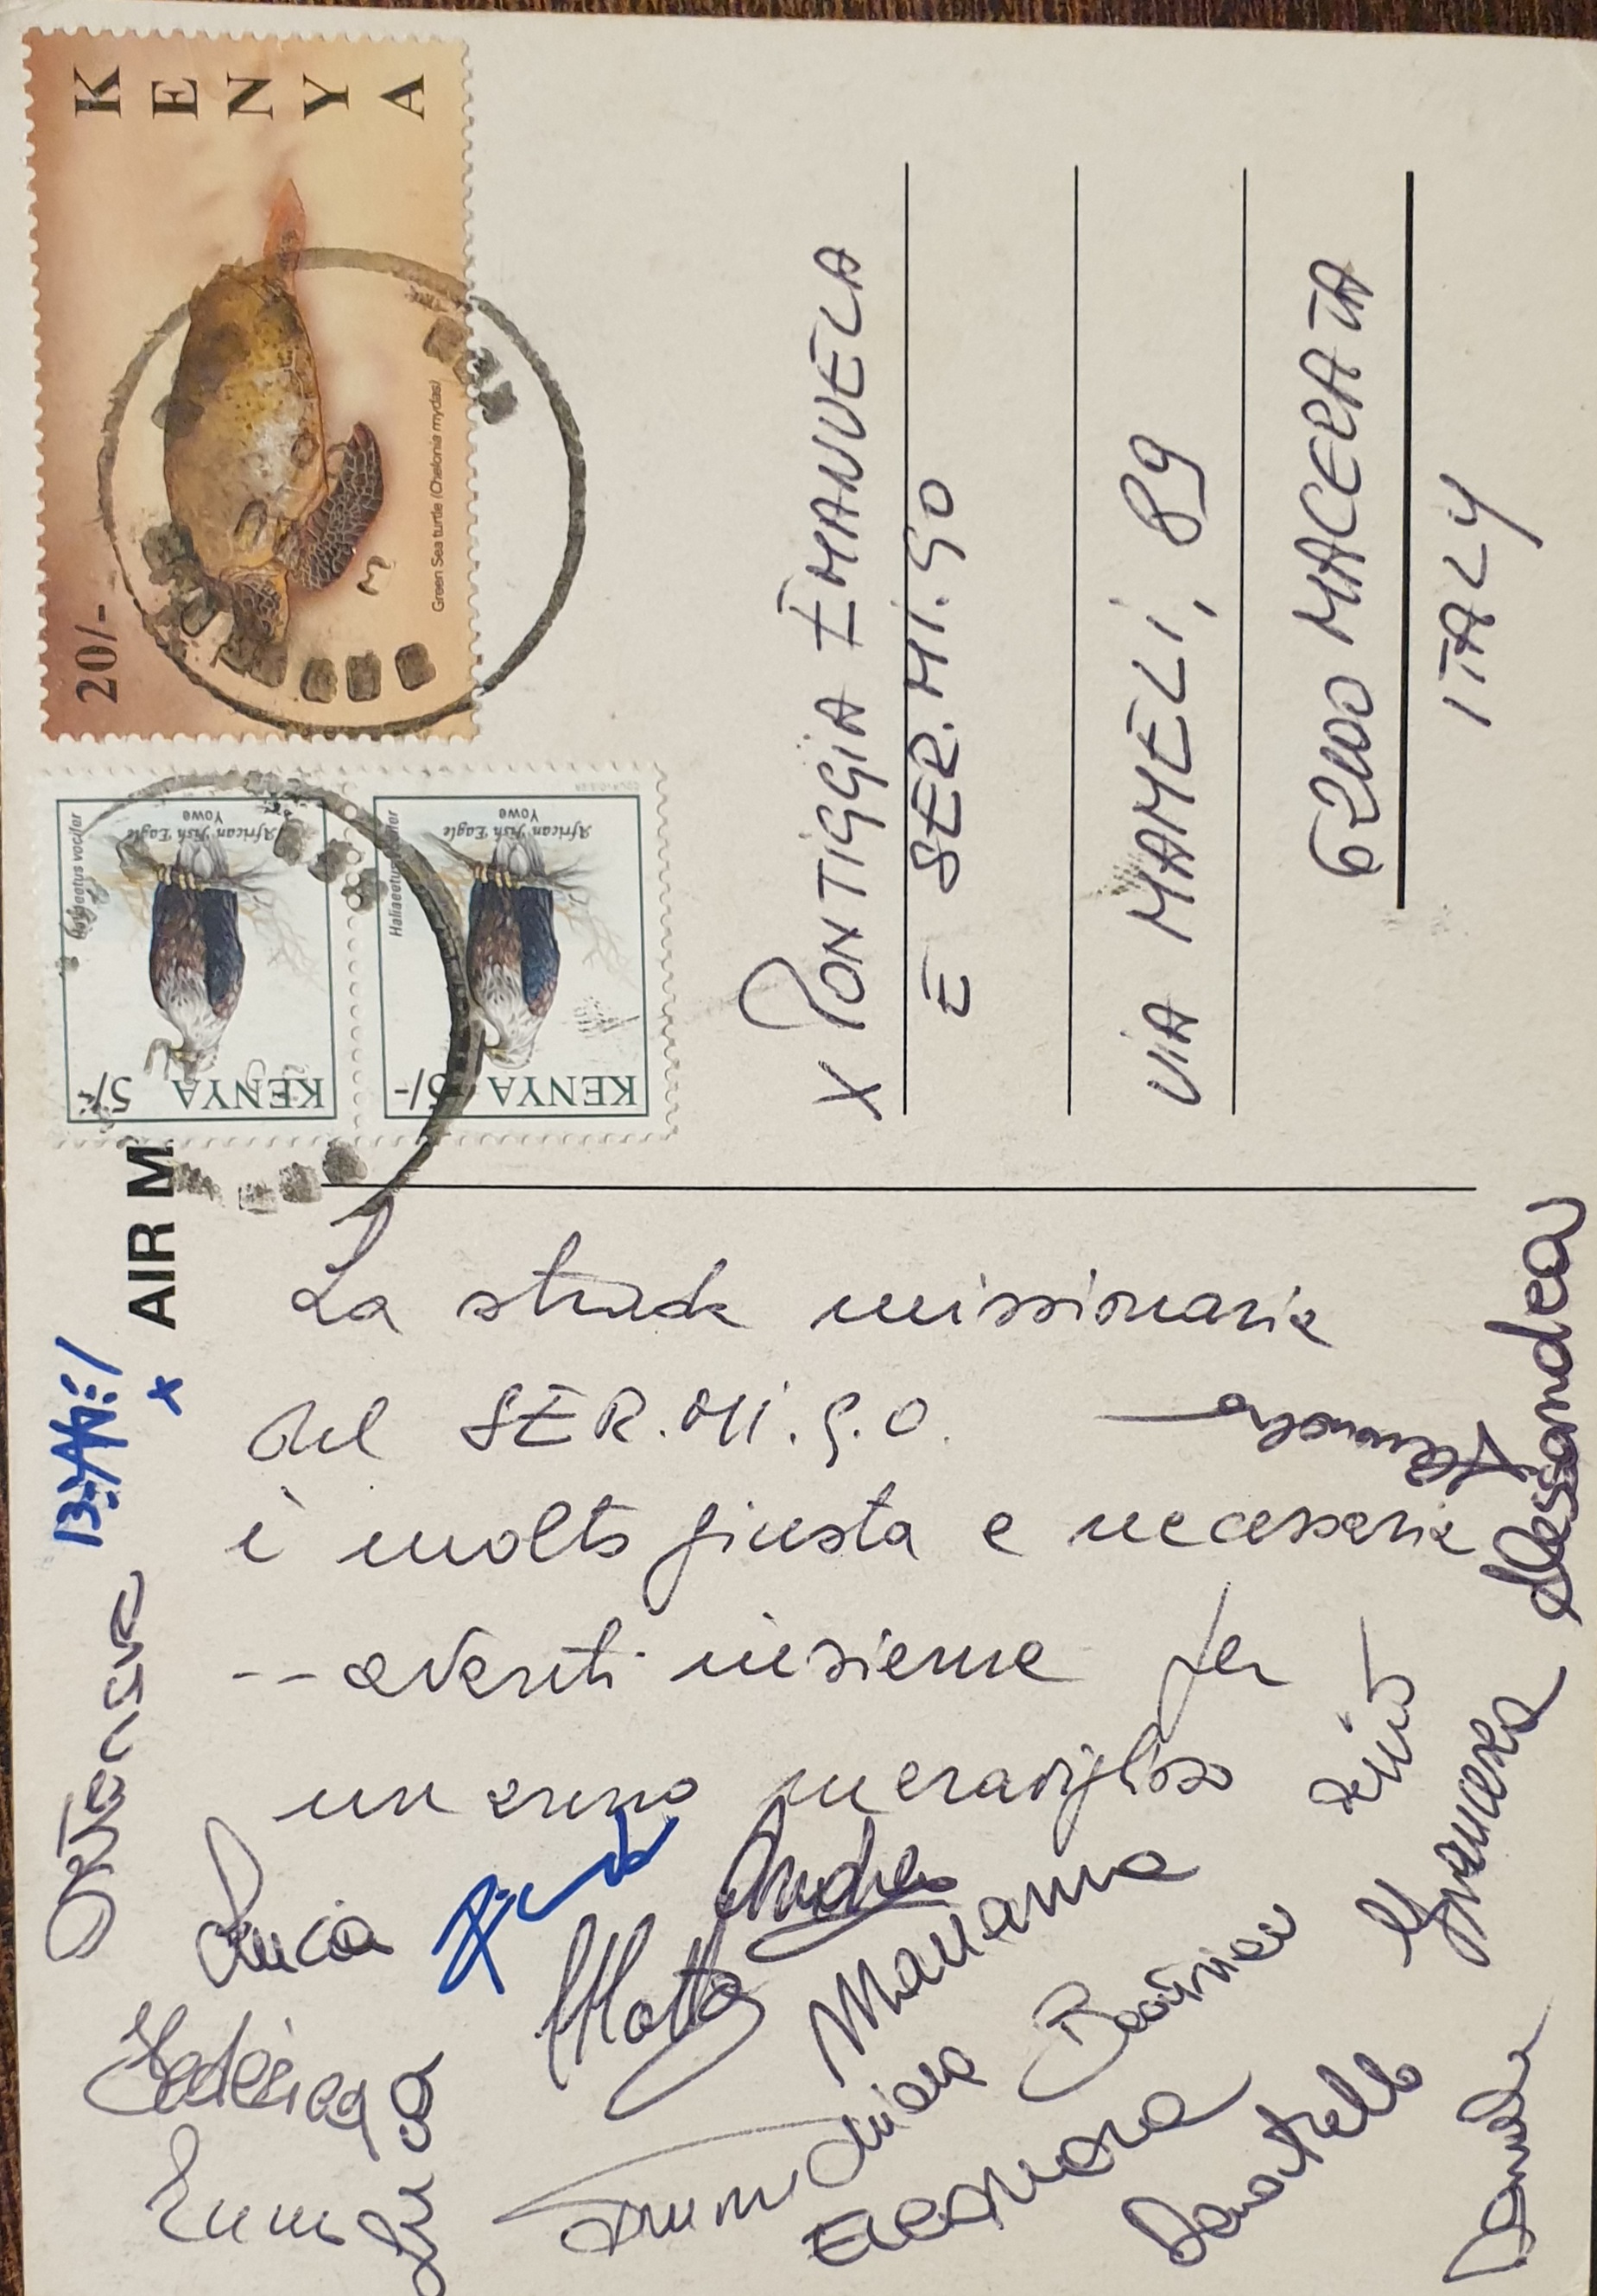 KENYA
20/-
Green Sea turtle (Chelonia mydas)
Haliaeetus vocifer
African Fish Eagle
Yowe
KENYA 5/-
Haliaeetus vocifer
African Fish Eagle
Yowe
KENYA 5/-
AIR M
La strada missionaria
del SER.MI.GO.
è molto giusta e necessaria
-- avanti insieme per
un anno meraviglioso
X PONTIGGIA EMANUELA
E SER.MI.GO
VIA MAMELI, 89
62100 MACERATA
ITALY
Ortensia
Lucia
Federica
Luca
Mattia
Andrea
Marianna
Chiara
Beatrice
Eleonora
Donatella
Daniela
Francesca
Alessandra